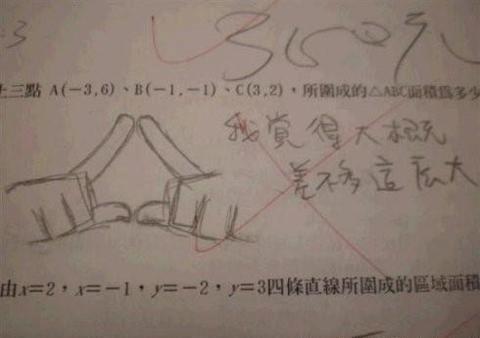 :3
350元
上三點 A(-3,6)、B(-1,-1)、C(3,2)，所圍成的△ABC面積為多少
我覺得大概
差不多這么大
由x=2，x=-1，y=-2，y=3四條直線所圍成的區域面積